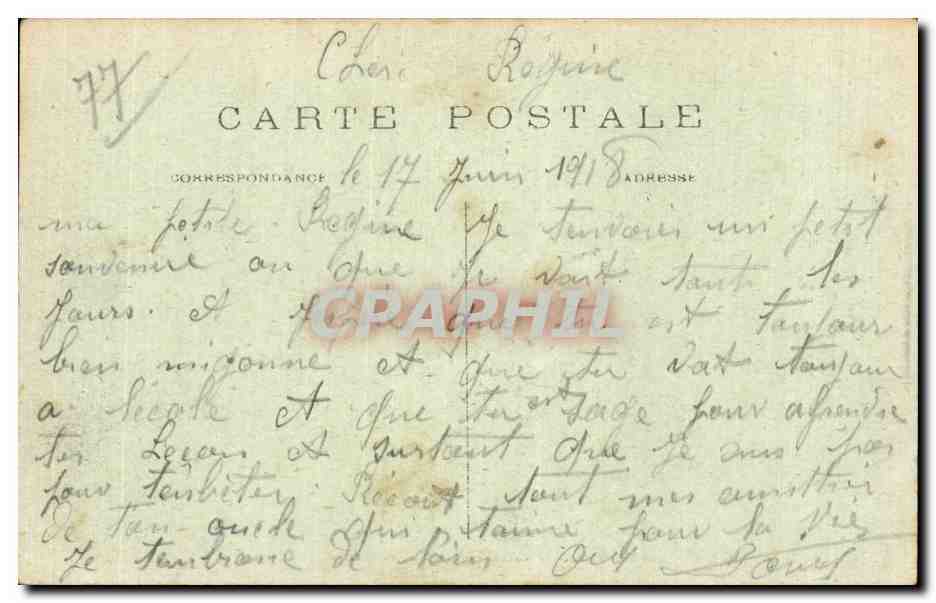 77
Chere Regine
CARTE POSTALE
CORRESPONDANCE le 17 Juin 1918 ADRESSE
ma petite Regine Je tenvoies un petit
souvenir ou que je vait tout les
Jours. et Jespere que tu est toujour
bien mignonne et que tu vat toujour
a lecole et que tu est sage pour aprendre
tes Lecons et surtout que je suis pas
pour tembeter. Recoit tout mes amitier
de ton oncle qui taime pour la vie
Je tembrasse de loin
CRAPHIL